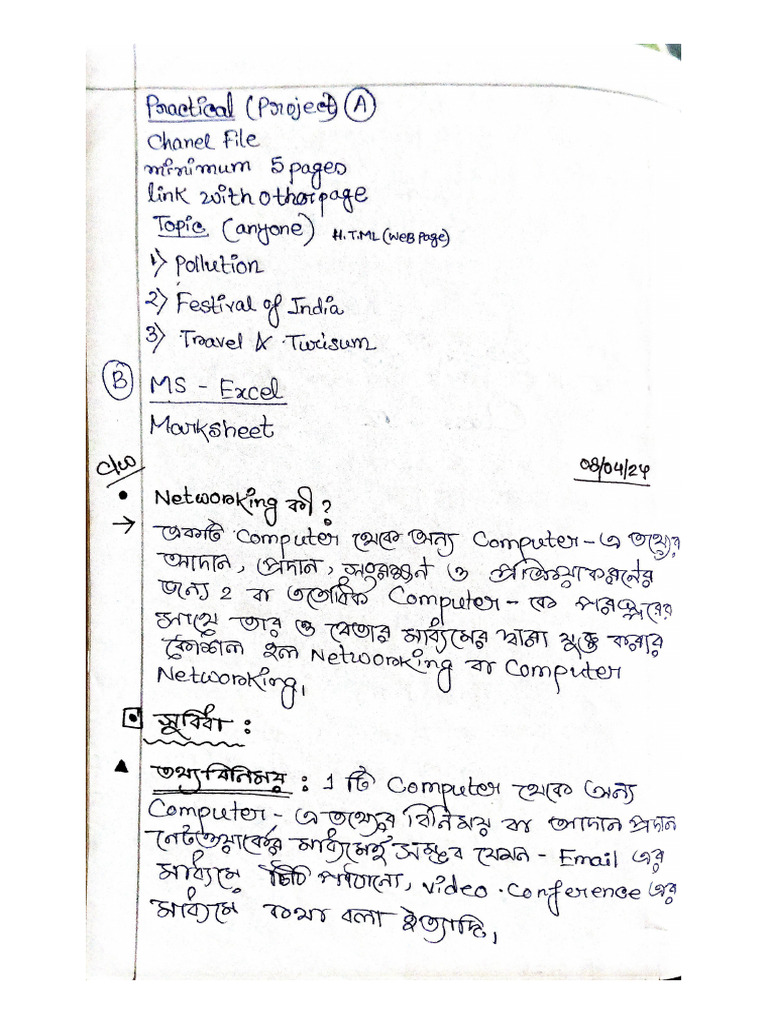 Practical (Project) A
Chanel File
minimum 5 pages
link with other page
Topic (anyone) H.T.ML (Web Page)
1) Pollution
2) Festival of India
3) Travel & Turisum
B MS - Excel
Marksheet
C/W 08/04/24
• Networking কী ?
→ একটি Computer থেকে অন্য Computer - এ তথ্যের
আদান, প্রদান, সংরক্ষণ ও প্রক্রিয়াকরনের
জন্যে 2 বা ততোধিক Computer - কে পরস্পরের
সাথে তার ও বেতার মাধ্যমের দ্বারা যুক্ত করার
কৌশল হল Networking বা Computer
Networking।
সুবিধা :
▲ তথ্যবিনিময় : 1 টি Computer থেকে অন্য
Computer - এ তথ্যের বিনিময় বা আদান প্রদান
নেটওয়ার্কের মাধ্যমেই সম্ভব যেমন - Email এর
মাধ্যমে চিঠি পাঠানো, video . Conference এর
মাধ্যমে কথা বলা ইত্যাদি।